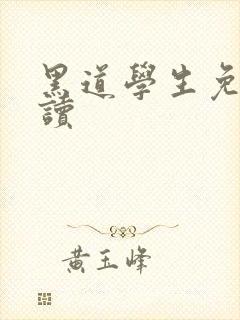 黑道學生免
讀
黃玉峰